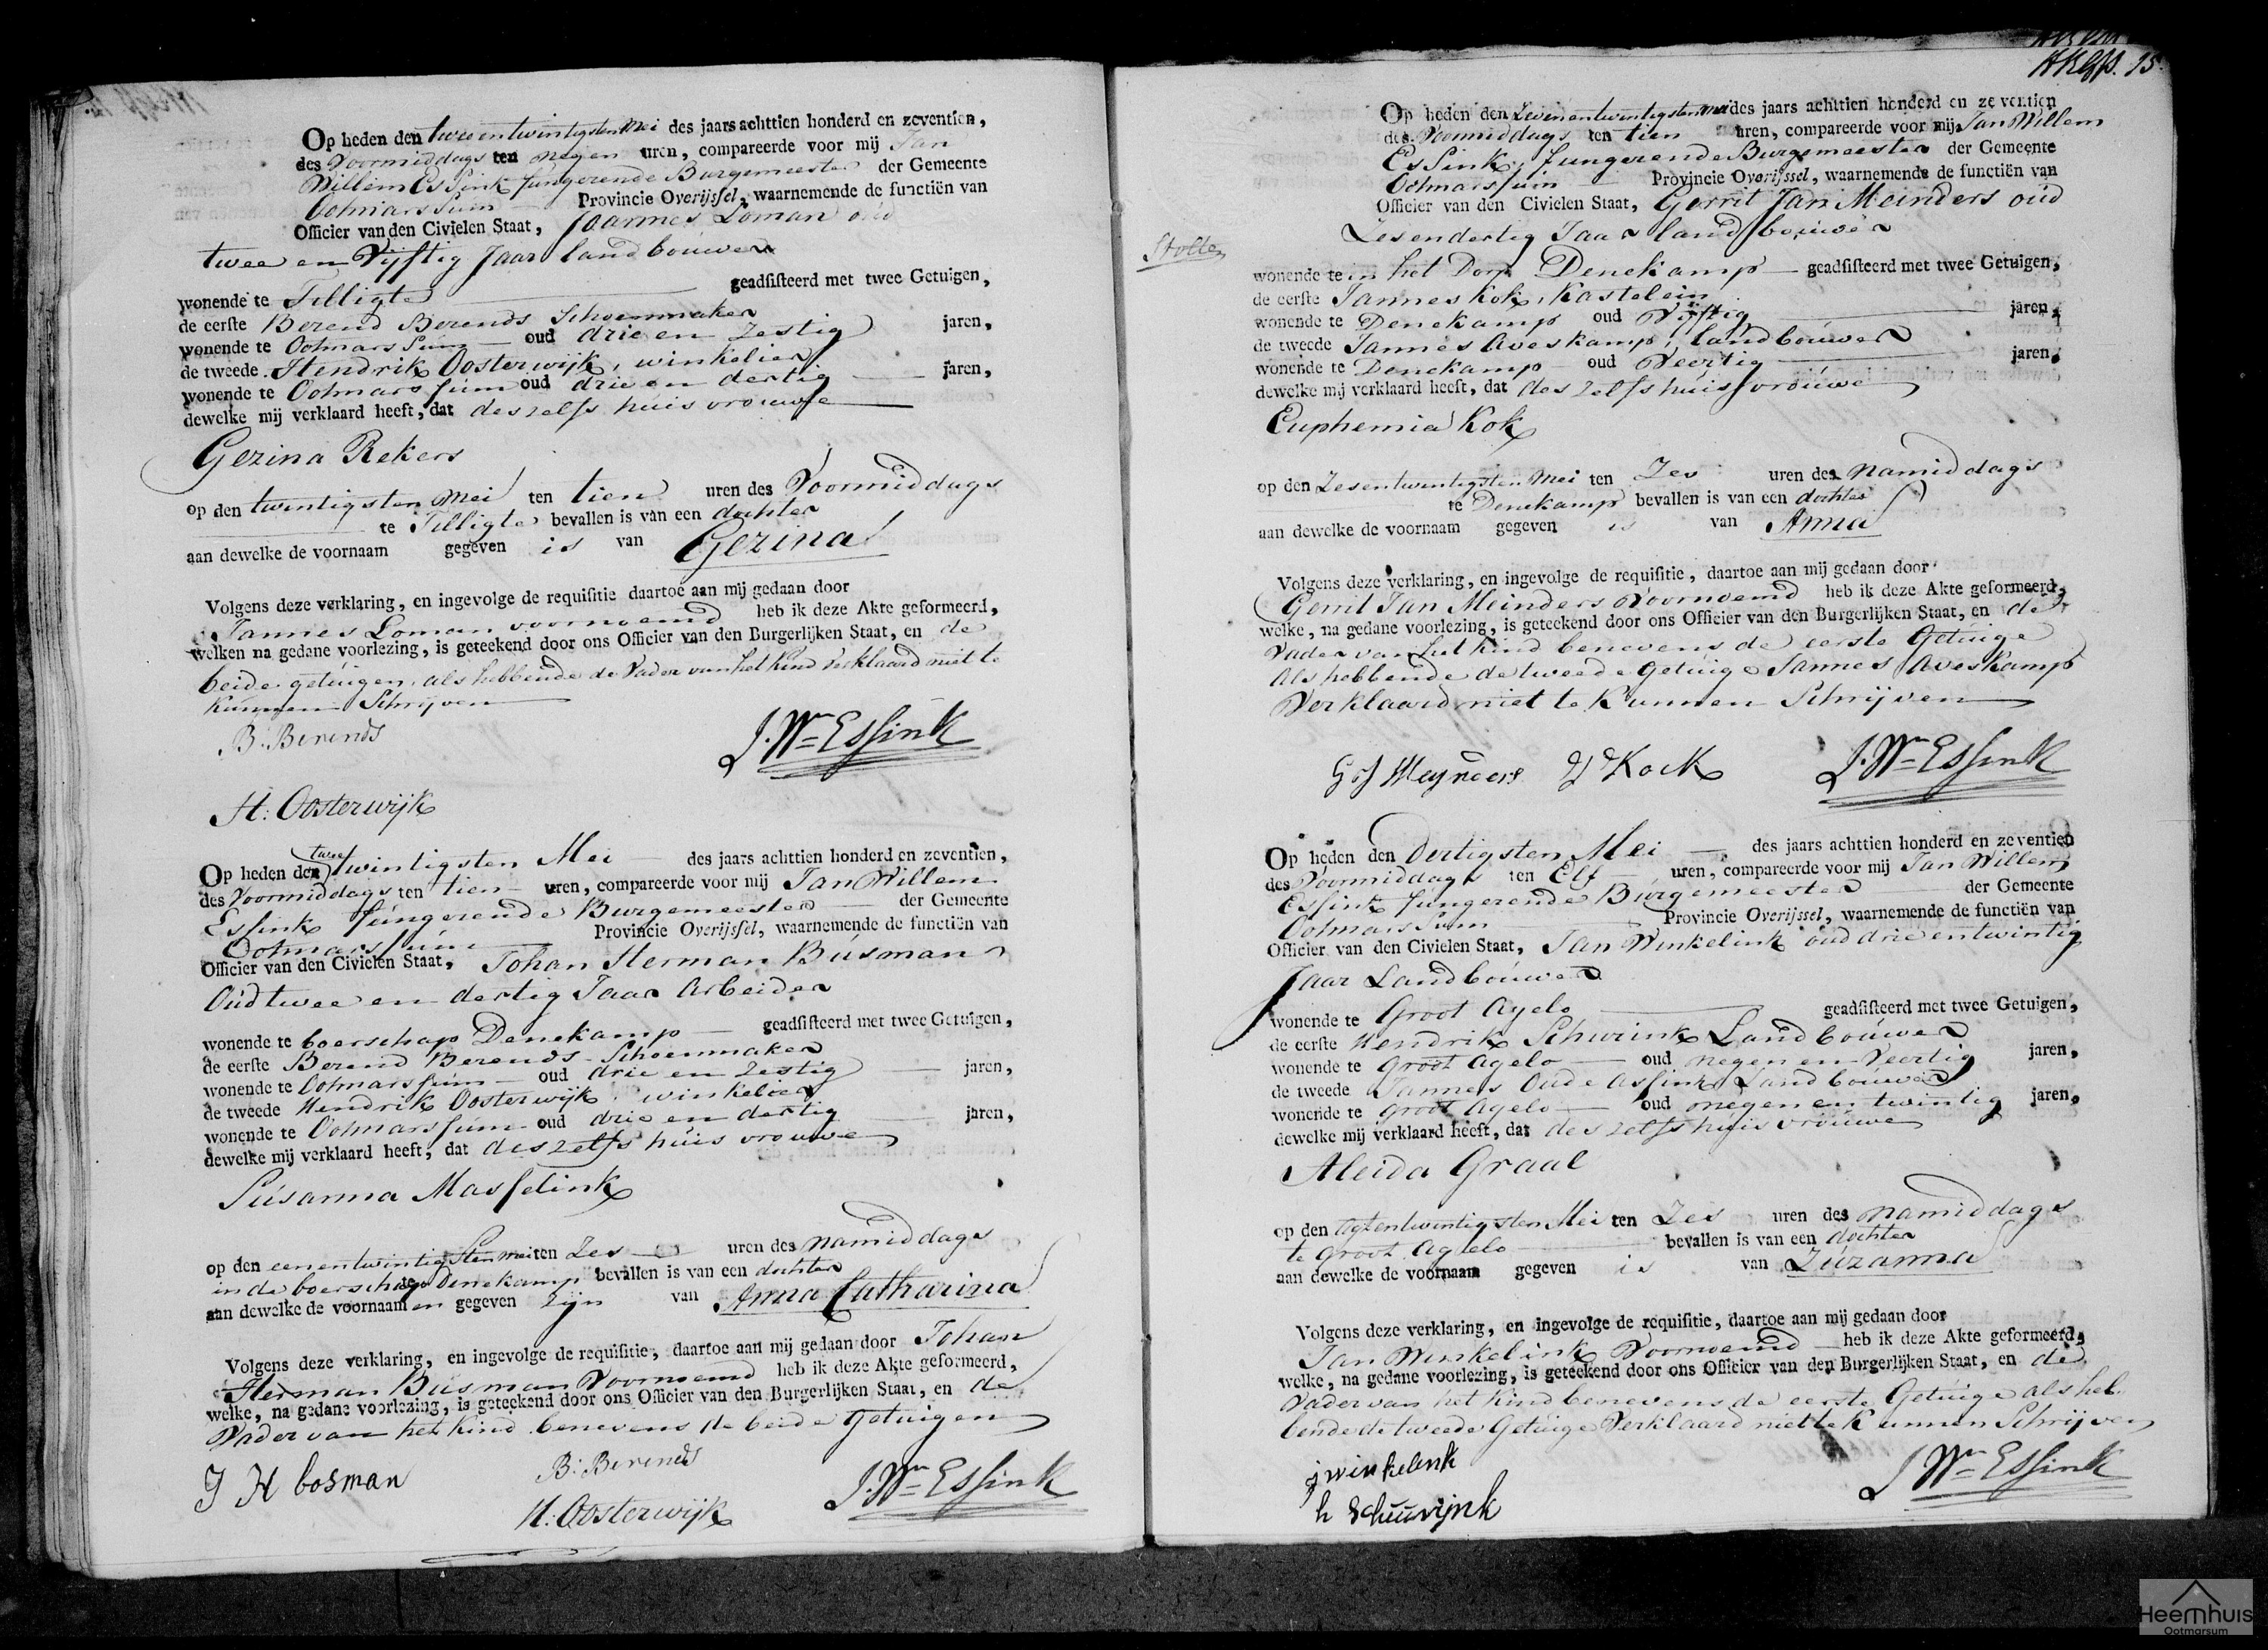 Op heden den twee en twintigsten Mei des jaars achttien honderd en zeventien,
des Voormiddags ten negen uren, compareerde voor mij Jan
Willem Essink fungerende Burgemeester der Gemeente
Ootmarssum Provincie Overijssel, waarnemende de functiën van
Officier van den Civielen Staat, Joannes Loman oud
twee en Vijftig Jaar landbouwer
wonende te Tilligte geadsisteerd met twee Getuigen,
de eerste Berend Berends Schoenmaker
wonende te Ootmarssum oud drie en zestig jaren,
de tweede Hendrik Oosterwijk, winkelier
wonende te Ootmarssum oud drie en dertig jaren,
dewelke mij verklaard heeft, dat deszelfs huisvrouwe
Gezina Rekers
op den twintigsten Mei ten tien uren des Voormiddags
te Tilligte bevallen is van een dochter
aan dewelke de voornaam gegeven is van Gezina
Volgens deze verklaring, en ingevolge de requisitie daartoe aan mij gedaan door
Jannes Loman voornoemd heb ik deze Akte geformeerd,
welken na gedane voorlezing, is geteekend door ons Officier van den Burgerlijken Staat, en de
beide getuigen, als hebbende de Vader van het Kind verklaard niet te
kunnen Schrijven
B. Berends
J. Wm Essink
H: Oosterwijk
Op heden den twee twintigsten Mei des jaars achttien honderd en zeventien,
des Voormiddags ten tien uren, compareerde voor mij Jan Willem
Essink fungerende Burgemeester der Gemeente
Ootmarssum Provincie Overijssel, waarnemende de functiën van
Officier van den Civielen Staat, Johan Herman Busman
Oud twee en dertig Jaar Arbeider
wonende te boerschap Denekamp geadsisteerd met twee Getuigen,
de eerste Berend Berends Schoenmaker
wonende te Ootmarssum oud drie en zestig jaren,
de tweede Hendrik Oosterwijk, winkelier
wonende te Ootmarssum oud drie en dertig jaren,
dewelke mij verklaard heeft, dat deszelfs huisvrouwe
Susanna Masselink
op den eenentwintigsten mei ten Zes uren des Namiddags
in de boerschap te Denekamp bevallen is van een dochter
aan dewelke de voornaamen gegeven zijn van Anna Catharina
Volgens deze verklaring, en ingevolge de requisitie, daartoe aan mij gedaan door Johan
Herman Busman Voornoemd heb ik deze Akte geformeerd,
welke, na gedane voorlezing, is geteekend door ons Officier van den Burgerlijken Staat, en de
Vader van het Kind benevens de beide Getuigen
J H bosman
B. Berends
H: Oosterwijk
J. Wm Essink
15.
Op heden den Zevenentwintigsten mei des jaars achttien honderd en zeventien
des Voormiddags ten tien uren, compareerde voor mij, Jan Willem
Essink, fungerende Burgemeester der Gemeente
Ootmarssum Provincie Overijssel, waarnemende de functiën van
Officier van den Civielen Staat, Gerrit Jan Meinders oud
Zesendertig Jaar landbouwer
Stolte
wonende te in het Dorp Denekamp geadsisteerd met twee Getuigen,
de eerste Jannes Kok, Kastelein
wonende te Denekamp oud Vijftig jaren,
de tweede Jannes Aveskamp, landbouwer
wonende te Denekamp oud Veertig jaren,
dewelke mij verklaard heeft, dat deszelfs huisvrouwe
Euphemia Kok
op den Zesentwintigsten Mei ten Zes uren des namiddags
te Denekamp bevallen is van een dochter
aan dewelke de voornaam gegeven is van Anna
Volgens deze verklaring, en ingevolge de requisitie, daartoe aan mij gedaan door
Gerrit Jan Meinders Voornoemd heb ik deze Akte geformeerd,
welke, na gedane voorlezing, is geteekend door ons Officier van den Burgerlijken Staat, en de
Vader van het Kind benevens de eerste Getuige
Als hebbende de tweede Getuige Jannes Aveskamp
Verklaard niet te Kunnen Schrijven
G J Meynders
Kock
J. Wm Essink
Op heden den Dertigsten Mei des jaars achttien honderd en zeventien
des Voormiddags ten Elf uren, compareerde voor mij Jan Willem
Essink fungerende Burgemeester der Gemeente
Ootmarssum Provincie Overijssel, waarnemende de functiën van
Officier van den Civielen Staat, Jan Winkelink oud drie entwintig
Jaar Landbouwer
wonende te Groot Agelo geadsisteerd met twee Getuigen,
de eerste Hendrik Schurink Landbouwer
wonende te Groot Agelo oud negen en Veertig jaren,
de tweede Jannes Oude Assink Landbouwer
wonende te Groot Agelo oud negen en twintig jaren,
dewelke mij verklaard heeft, dat deszelfs huisvrouwe
Aleida Graal
op den Agtentwintigsten Mei ten Zes uren des namiddags
te Groot Agelo bevallen is van een dochter
aan dewelke de voornaam gegeven is van Zuzanna
Volgens deze verklaring, en ingevolge de requisitie, daartoe aan mij gedaan door
Jan Winkelink Voornoemd heb ik deze Akte geformeerd,
welke, na gedane voorlezing, is geteekend door ons Officier van den Burgerlijken Staat, en de
Vader van het Kind benevens de eerste Getuige als heb
bende de tweede Getuige Verklaard niet te Kunnen Schrijven
j winkelink
h Schuurijnk
J Wm Essink
Heemhuis
Ootmarsum